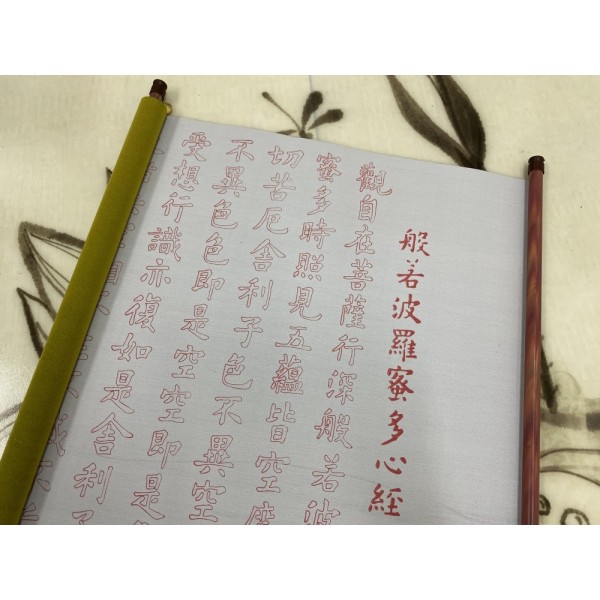 般若波羅蜜多心經
觀自在菩薩行深般若波
蜜多時照見五蘊皆空度
切苦厄舍利子色不異空
不異色色即是空空即是
受想行識亦復如是舍利子